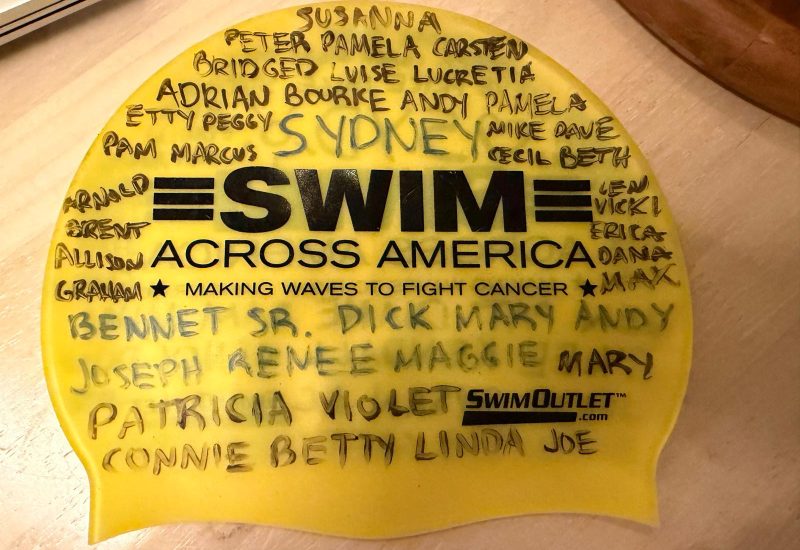 SUSANNA
PETER PAMELA CARSTEN
BRIDGED LUISE LUCRETIA
ADRIAN BOURKE ANDY PAMELA
ETTY PEGGY SYDNEY MIKE DAVE
PAM MARCUS CECIL BETH
ARNOLD SWIM LEN
VICKI
BRENT ERICA
ALLISON ACROSS AMERICA DANA
GRAHAM ★ MAKING WAVES TO FIGHT CANCER ★ MAX
BENNET SR. DICK MARY ANDY
JOSEPH RENEE MAGGIE MARY
PATRICIA VIOLET SWIMOUTLET™
.com
CONNIE BETTY LINDA JOE